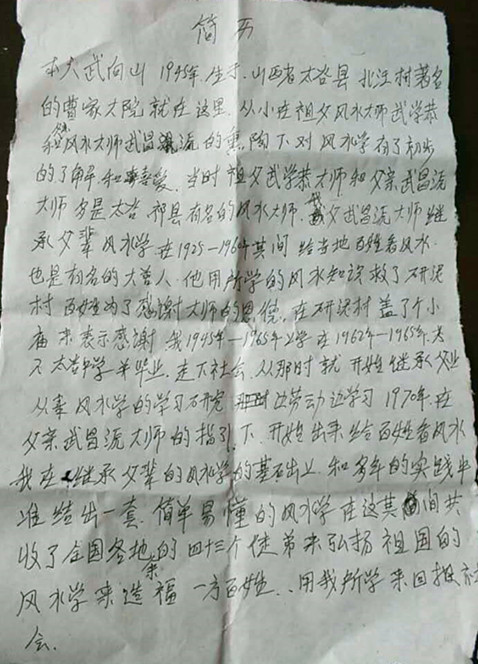 简历
本人武向山1945年生于.山西省太谷县北汪村著名
的曹家大院就在这里.从小在祖父风水大师武学恭
和父风水大师武昌流的熏陶下对风水学有了初步
的了解和喜爱.当时祖父武学恭大师和父亲武昌流
大师 是太谷 祁县有名的风水大师.我父武昌流大师继
承父辈风水学在1925—1964其间给当地百姓看风水
也是有名的大善人.他用所学的风水知识救了研泥
村百姓为了感谢大师的恩德.在研泥村盖了个小
庙来表示感谢.我1945年—1965年上学在1962年—1965年.
太谷中学毕业.走下社会.从那时就开始继承父业
从事风水学的学习研究 边劳动边学习1970年.在
父亲武昌流大师的指引下.开始出来给百姓看风水
我在继承父辈的风水学的基础上.和多年的实践中
准结出一套.简单易懂的风水学在这其间共
收了全国各地的四十三个徒弟来弘扬祖国的
风水学来造福一方百姓..用我所学来回报社
会.